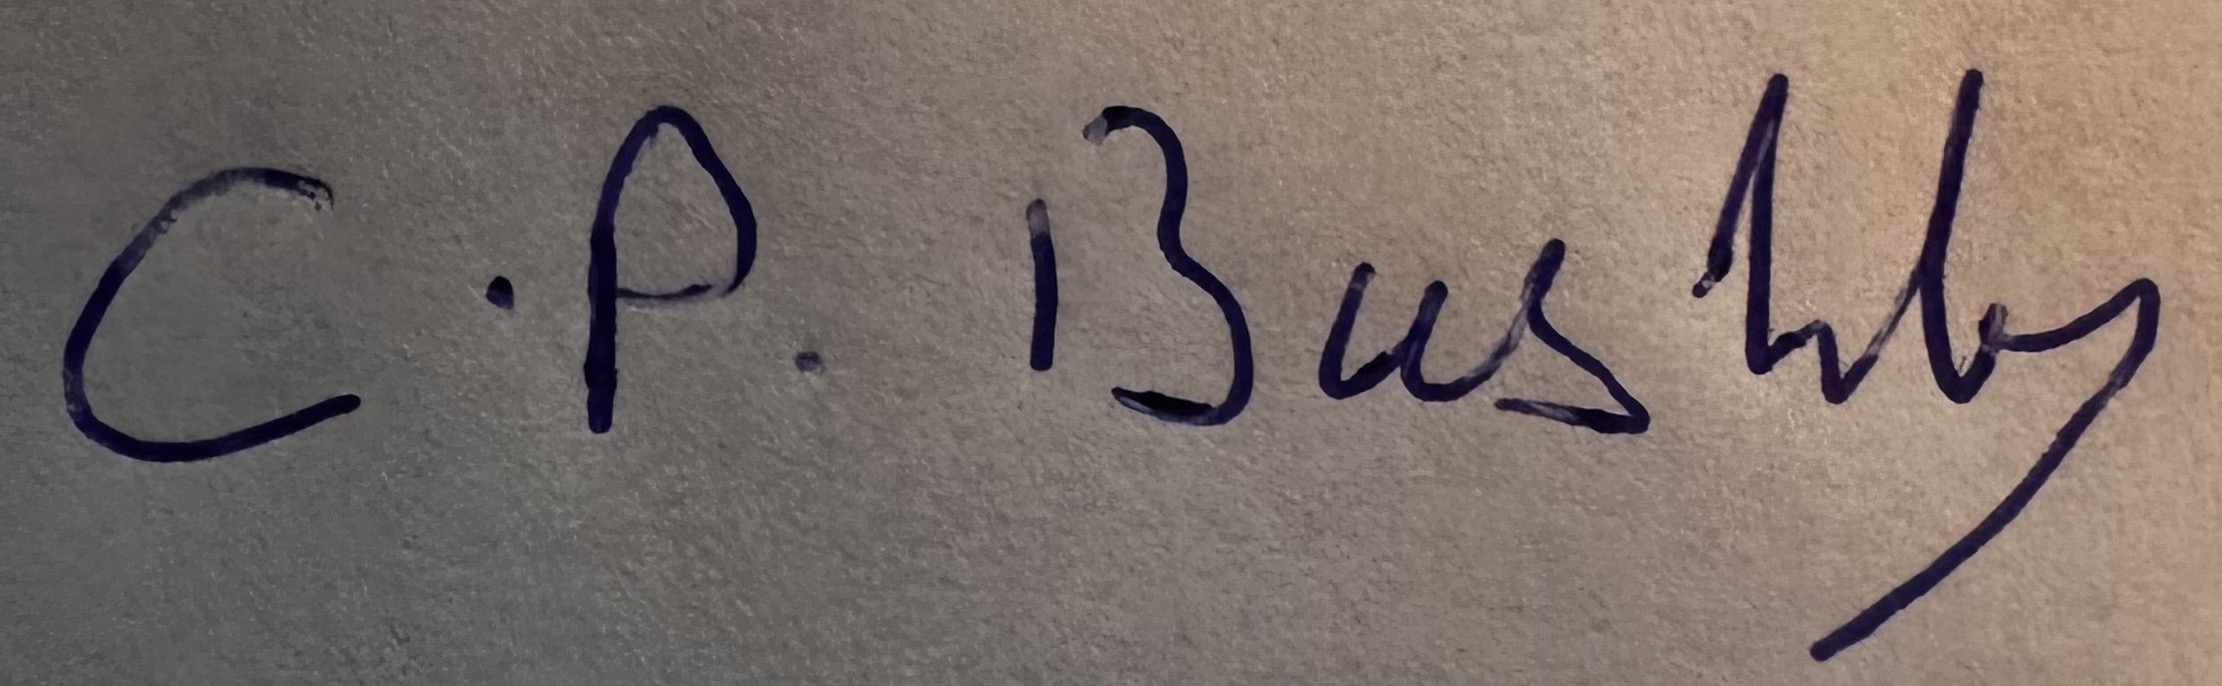 C. P. Bushby